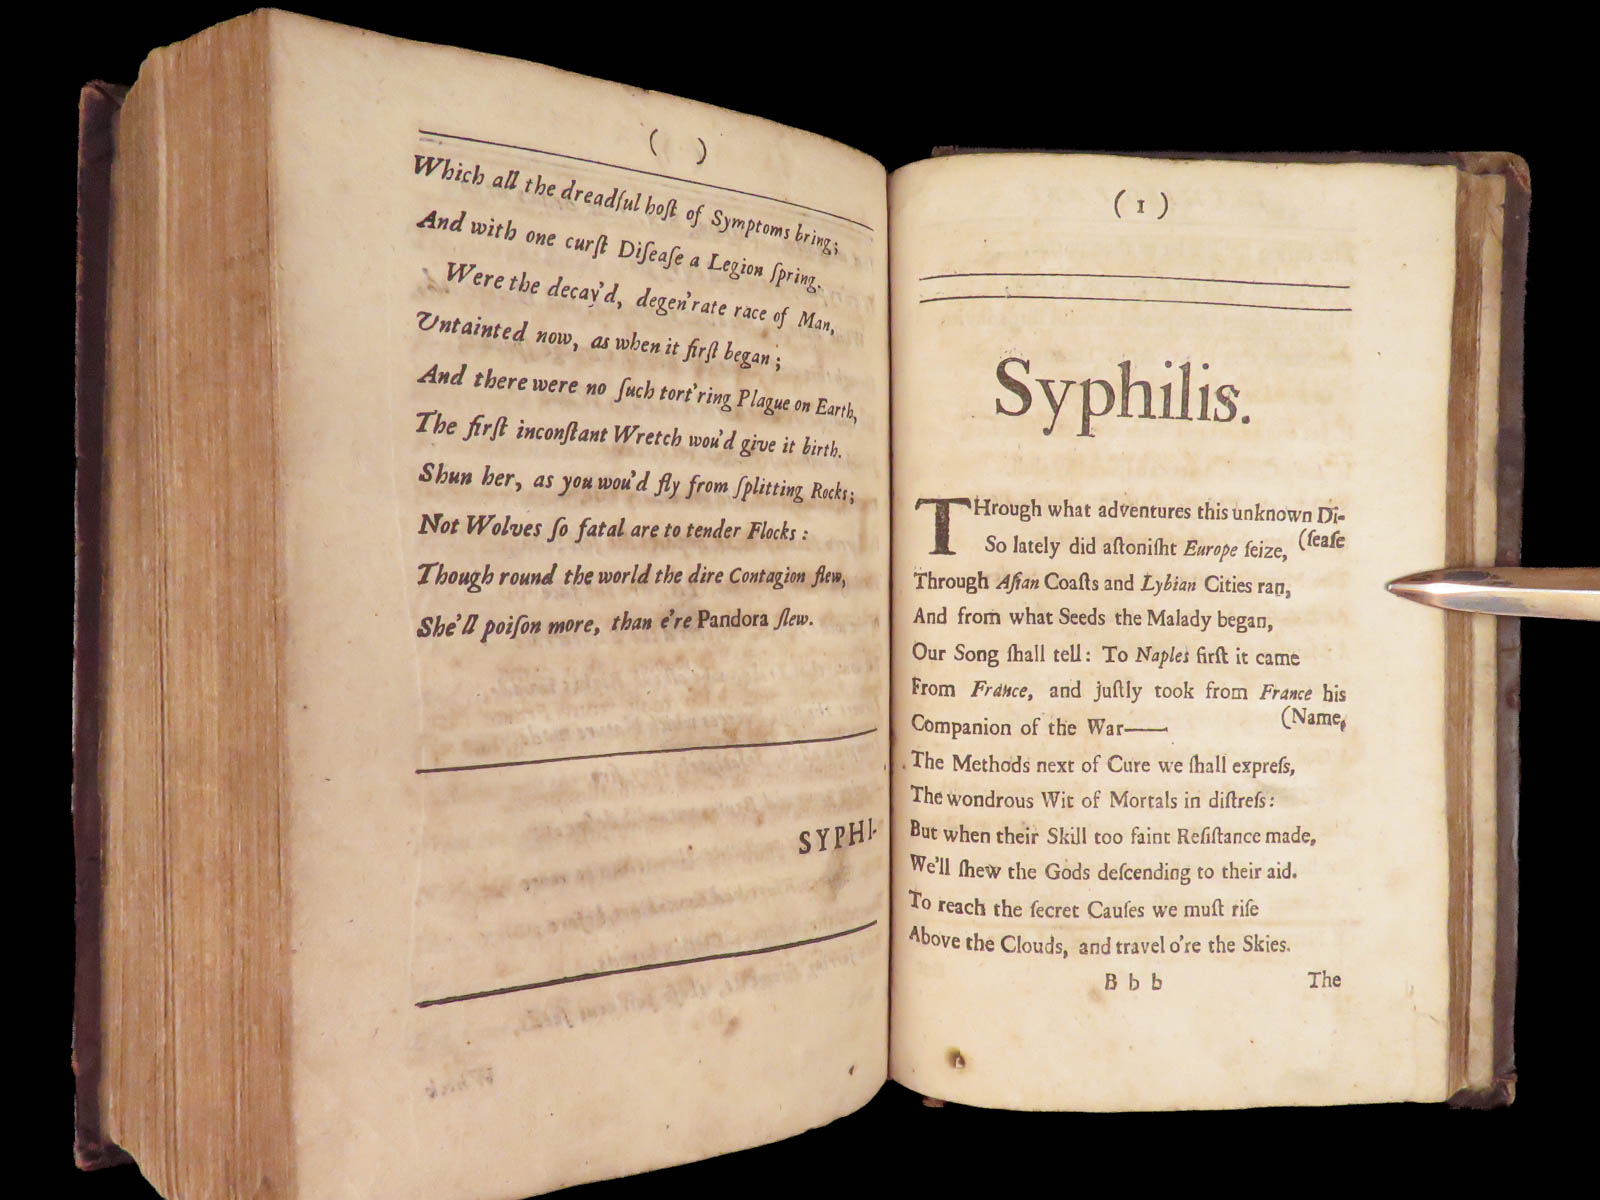 ( )
Which all the dreadſul hoſt of Symptoms bring;
And with one curſt Diſeaſe a Legion ſpring.
Were the decay'd, degen'rate race of Man,
Untainted now, as when it firſt began;
And there were no ſuch tort'ring Plague on Earth,
The firſt inconſtant Wretch wou'd give it birth.
Shun her, as you wou'd fly from ſplitting Rocks;
Not Wolves ſo fatal are to tender Flocks:
Though round the world the dire Contagion flew,
She'll poiſon more, than e're Pandora ſlew.
SYPHI-
( 1 )
Syphilis.
THrough what adventures this unknown Di-
So lately did aſtoniſht Europe ſeize, (ſeaſe
Through Aſian Coaſts and Lybian Cities ran,
And from what Seeds the Malady began,
Our Song ſhall tell: To Naples firſt it came
From France, and juſtly took from France his
Companion of the War—— (Name,
The Methods next of Cure we ſhall expreſs,
The wondrous Wit of Mortals in diſtreſs:
But when their Skill too faint Reſiſtance made,
We'll ſhew the Gods deſcending to their aid.
To reach the ſecret Cauſes we muſt riſe
Above the Clouds, and travel o're the Skies.
B b b The